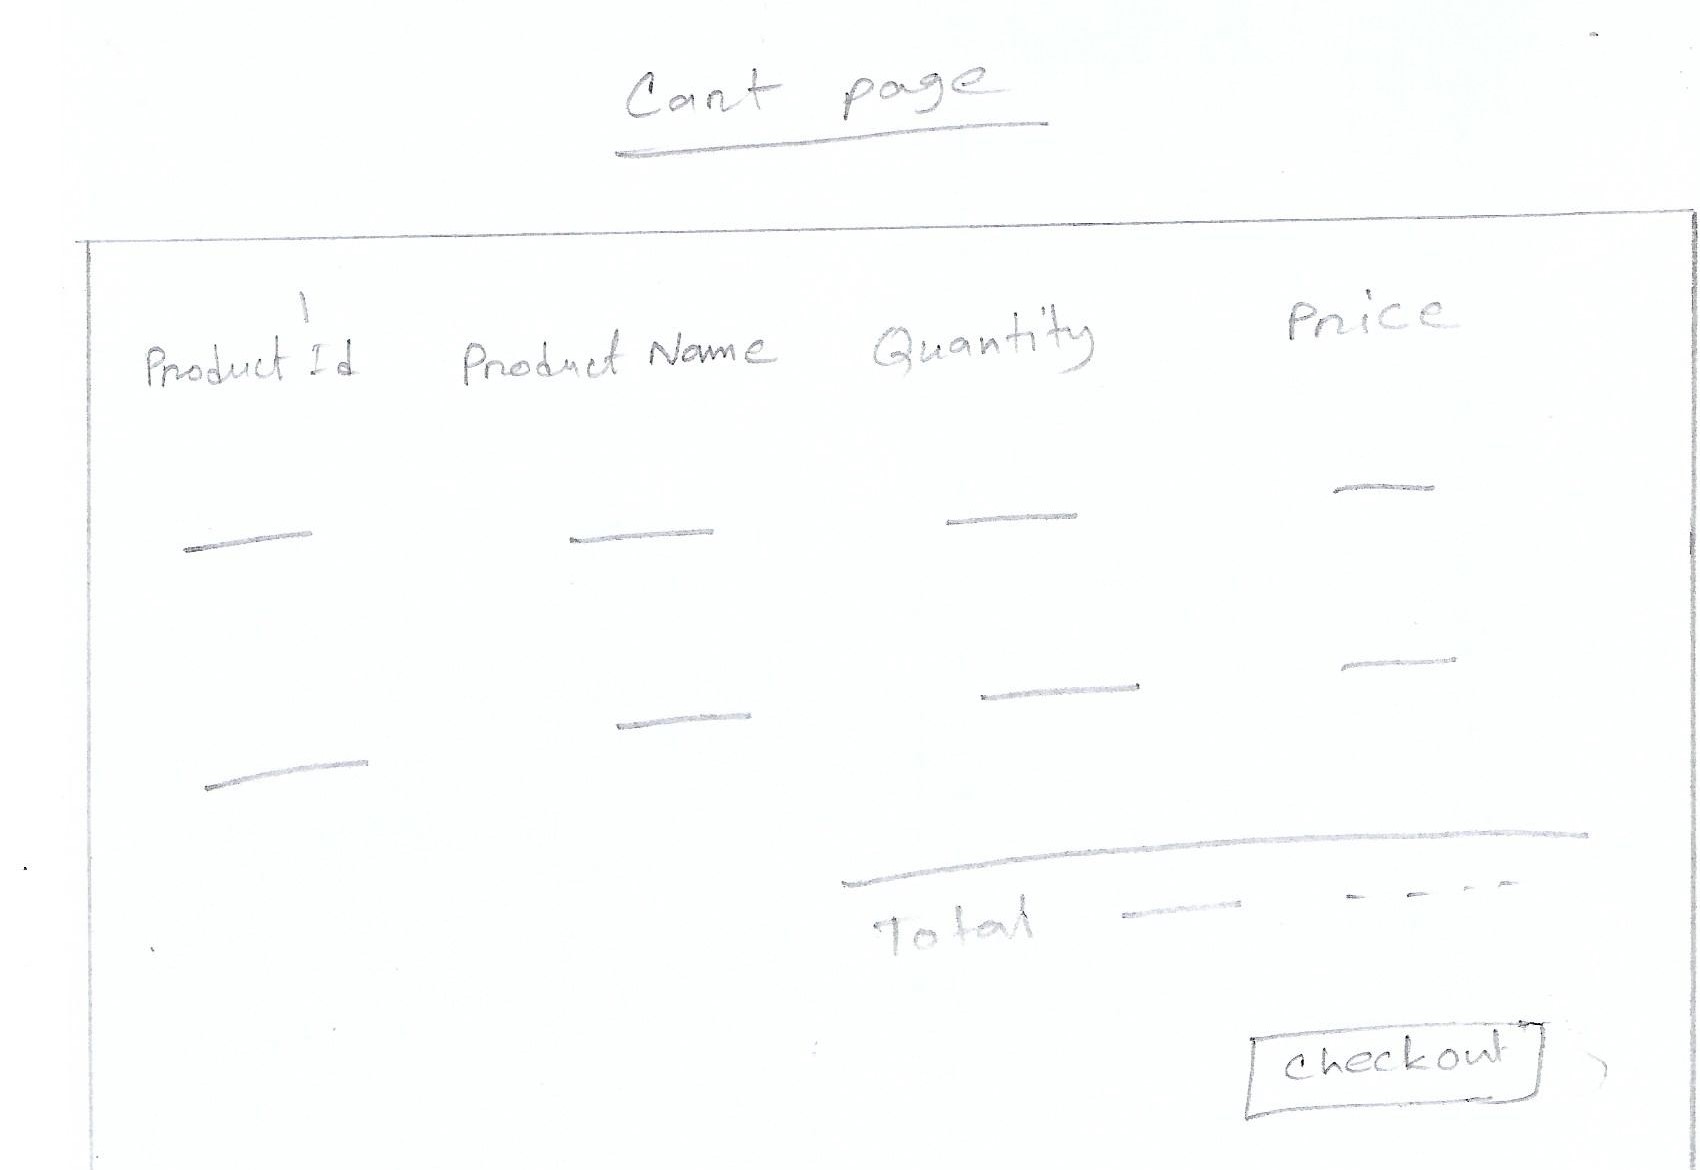 Cart page
Product Id Product Name Quantity Price
Total
Checkout